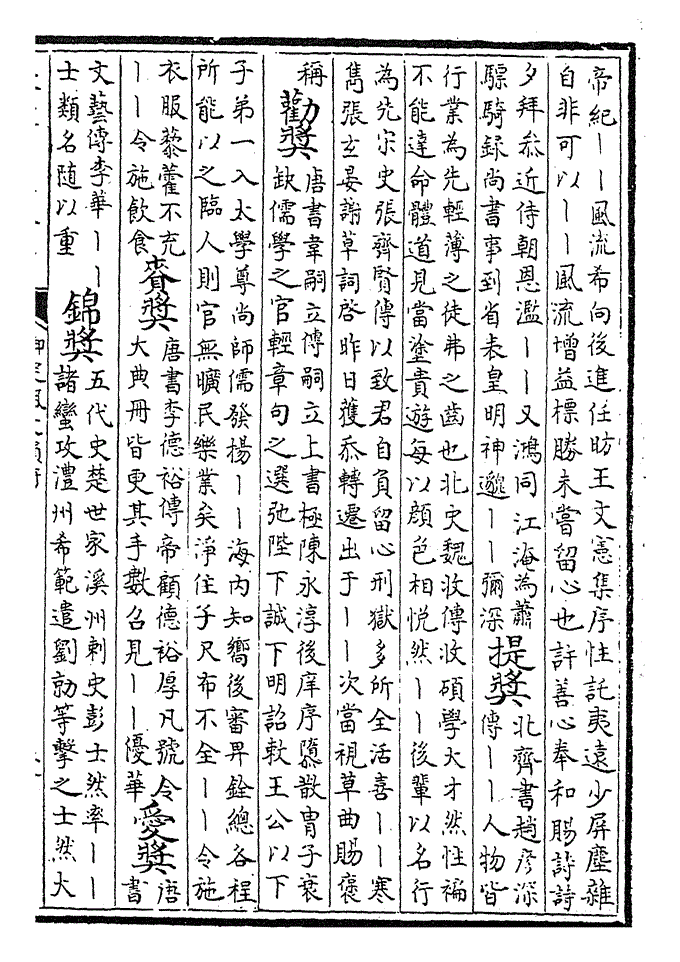 帝紀丨丨風流希向後進任昉王文憲集序性託夷遠少屏塵雜
自非可以丨丨風流增益標勝未嘗留心也許善心奉和賜詩詩
夕拜叅近侍朝恩濫丨丨又鴻同江淹為蕭
驃騎録尚書事到省表皇明神邈丨丨彌深
提奬
北齊書趙彦深
傳丨丨人物皆
行業為先輕薄之徒弗之齒也北史魏收傳收碩學大才然性褊
不能達命體道見當塗貴遊每以顔色相悦然丨丨後輩以名行
為先宋史張齊賢傳以致君自負留心刑獄多所全活喜丨丨寒
雋張玄晏謝草詞啓昨日獲忝轉遷出于丨丨次當視草曲賜褒
稱
勸奬
唐書韋嗣立傳嗣立上書極陳永淳後庠序隳散胄子衰
缺儒學之官輕章句之選弛陛下誠下明詔敕王公以下
子弟一入太學尊尚師儒發楊丨丨海内知嚮後審畀銓總各程
所能以之臨人則官無曠民樂業矣淨住子尺布不全丨丨令施
衣服藜藿不充
丨丨令施飲食
賚奬
唐書李德裕傳帝顧德裕厚凡號令
大典冊皆更其手數召見丨丨優華
愛奬
唐
書
文藝傳李華丨丨
士類名随以重
錦奬
五代史楚世家溪州刺史彭士然率丨丨
諸蠻攻澧州希範遣劉勍等擊之士然大